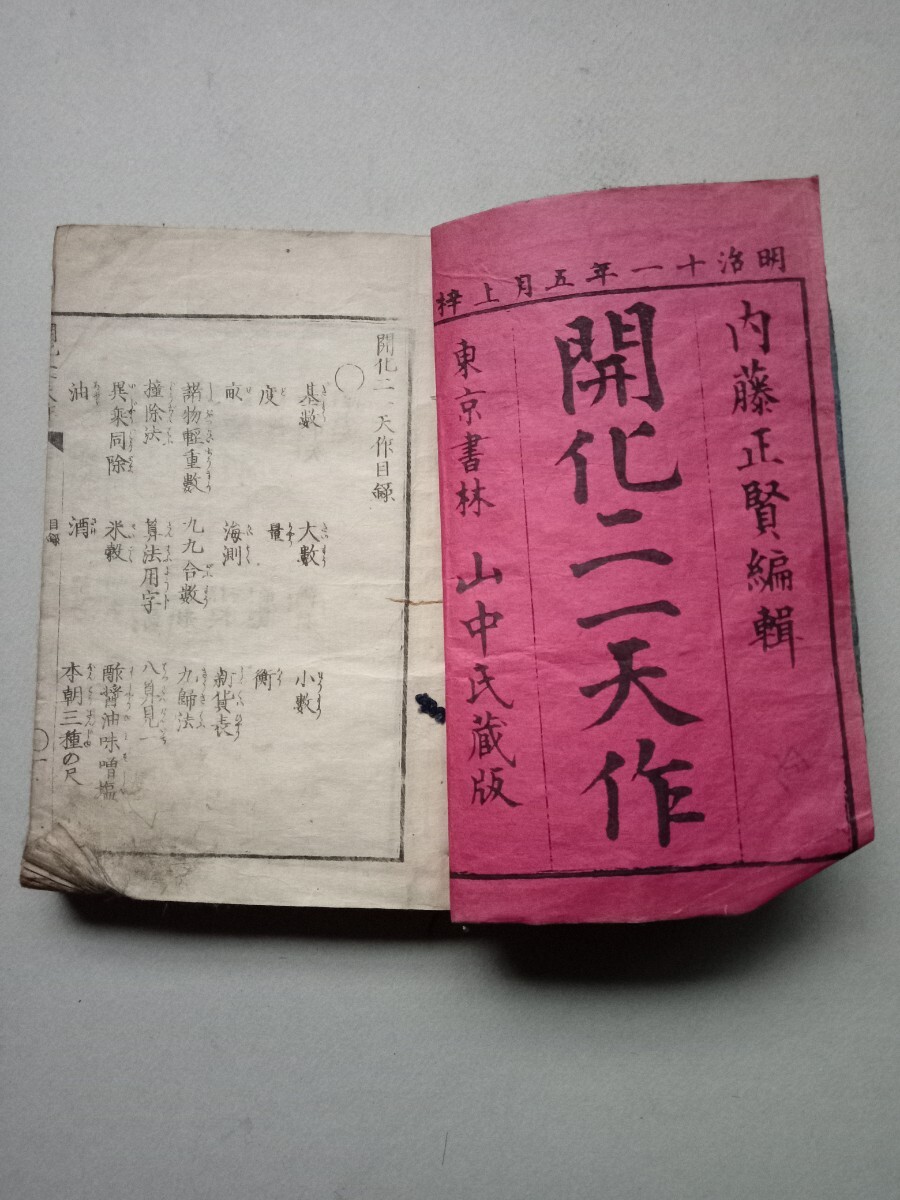 明治十一年五月上梓
内藤正賢編輯
開化二一天作
東京書林 山中氏蔵版
開化二一天作目録
基数 大数 小数
度 量 衡
畝 海測 新貨表
諸物軽重数 九九合数 九帰法
撞除法 算法用字 八算見一
異乗同除 米穀 酢醤油味噌塩
油 酒 本朝三種の尺
目録